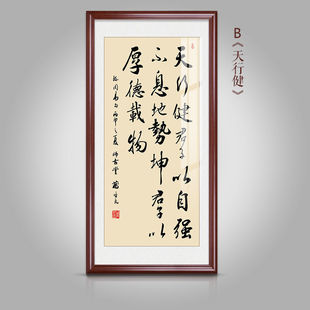 B《天行健》
天行健君子以自强
不息地勢坤君子以
厚德載物